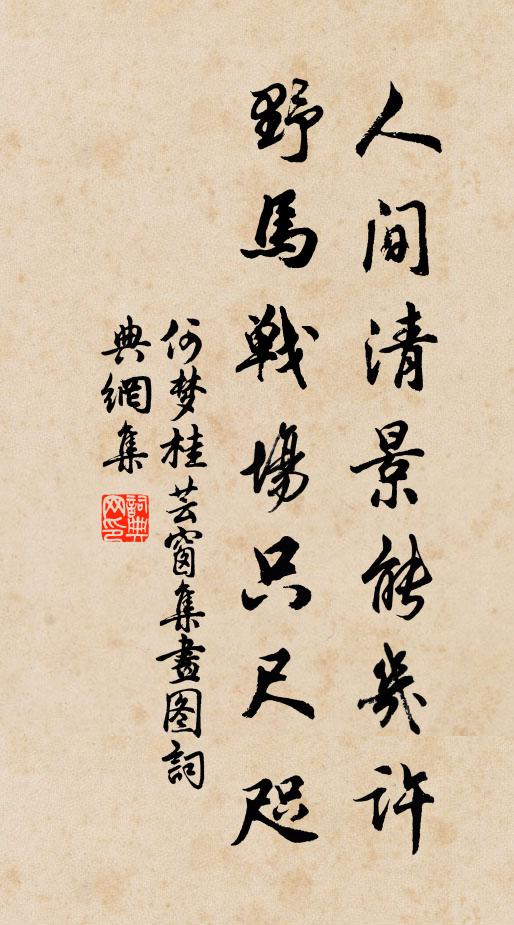 人間清景能幾許
野馬戰場只尺咫
何梦桂芸窗集畫图詞
典網集
詞典网印